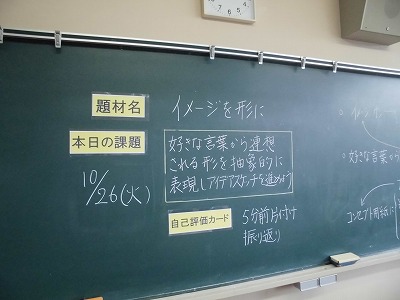 題材名 イメージを形に
本日の課題
好きな言葉から連想
される形を抽象的に
表現しアイデアスケッチを進めよう
10/26(火)
自己評価カード
5分前片付け
振り返り
。好きな言葉
コンセプト用紙に